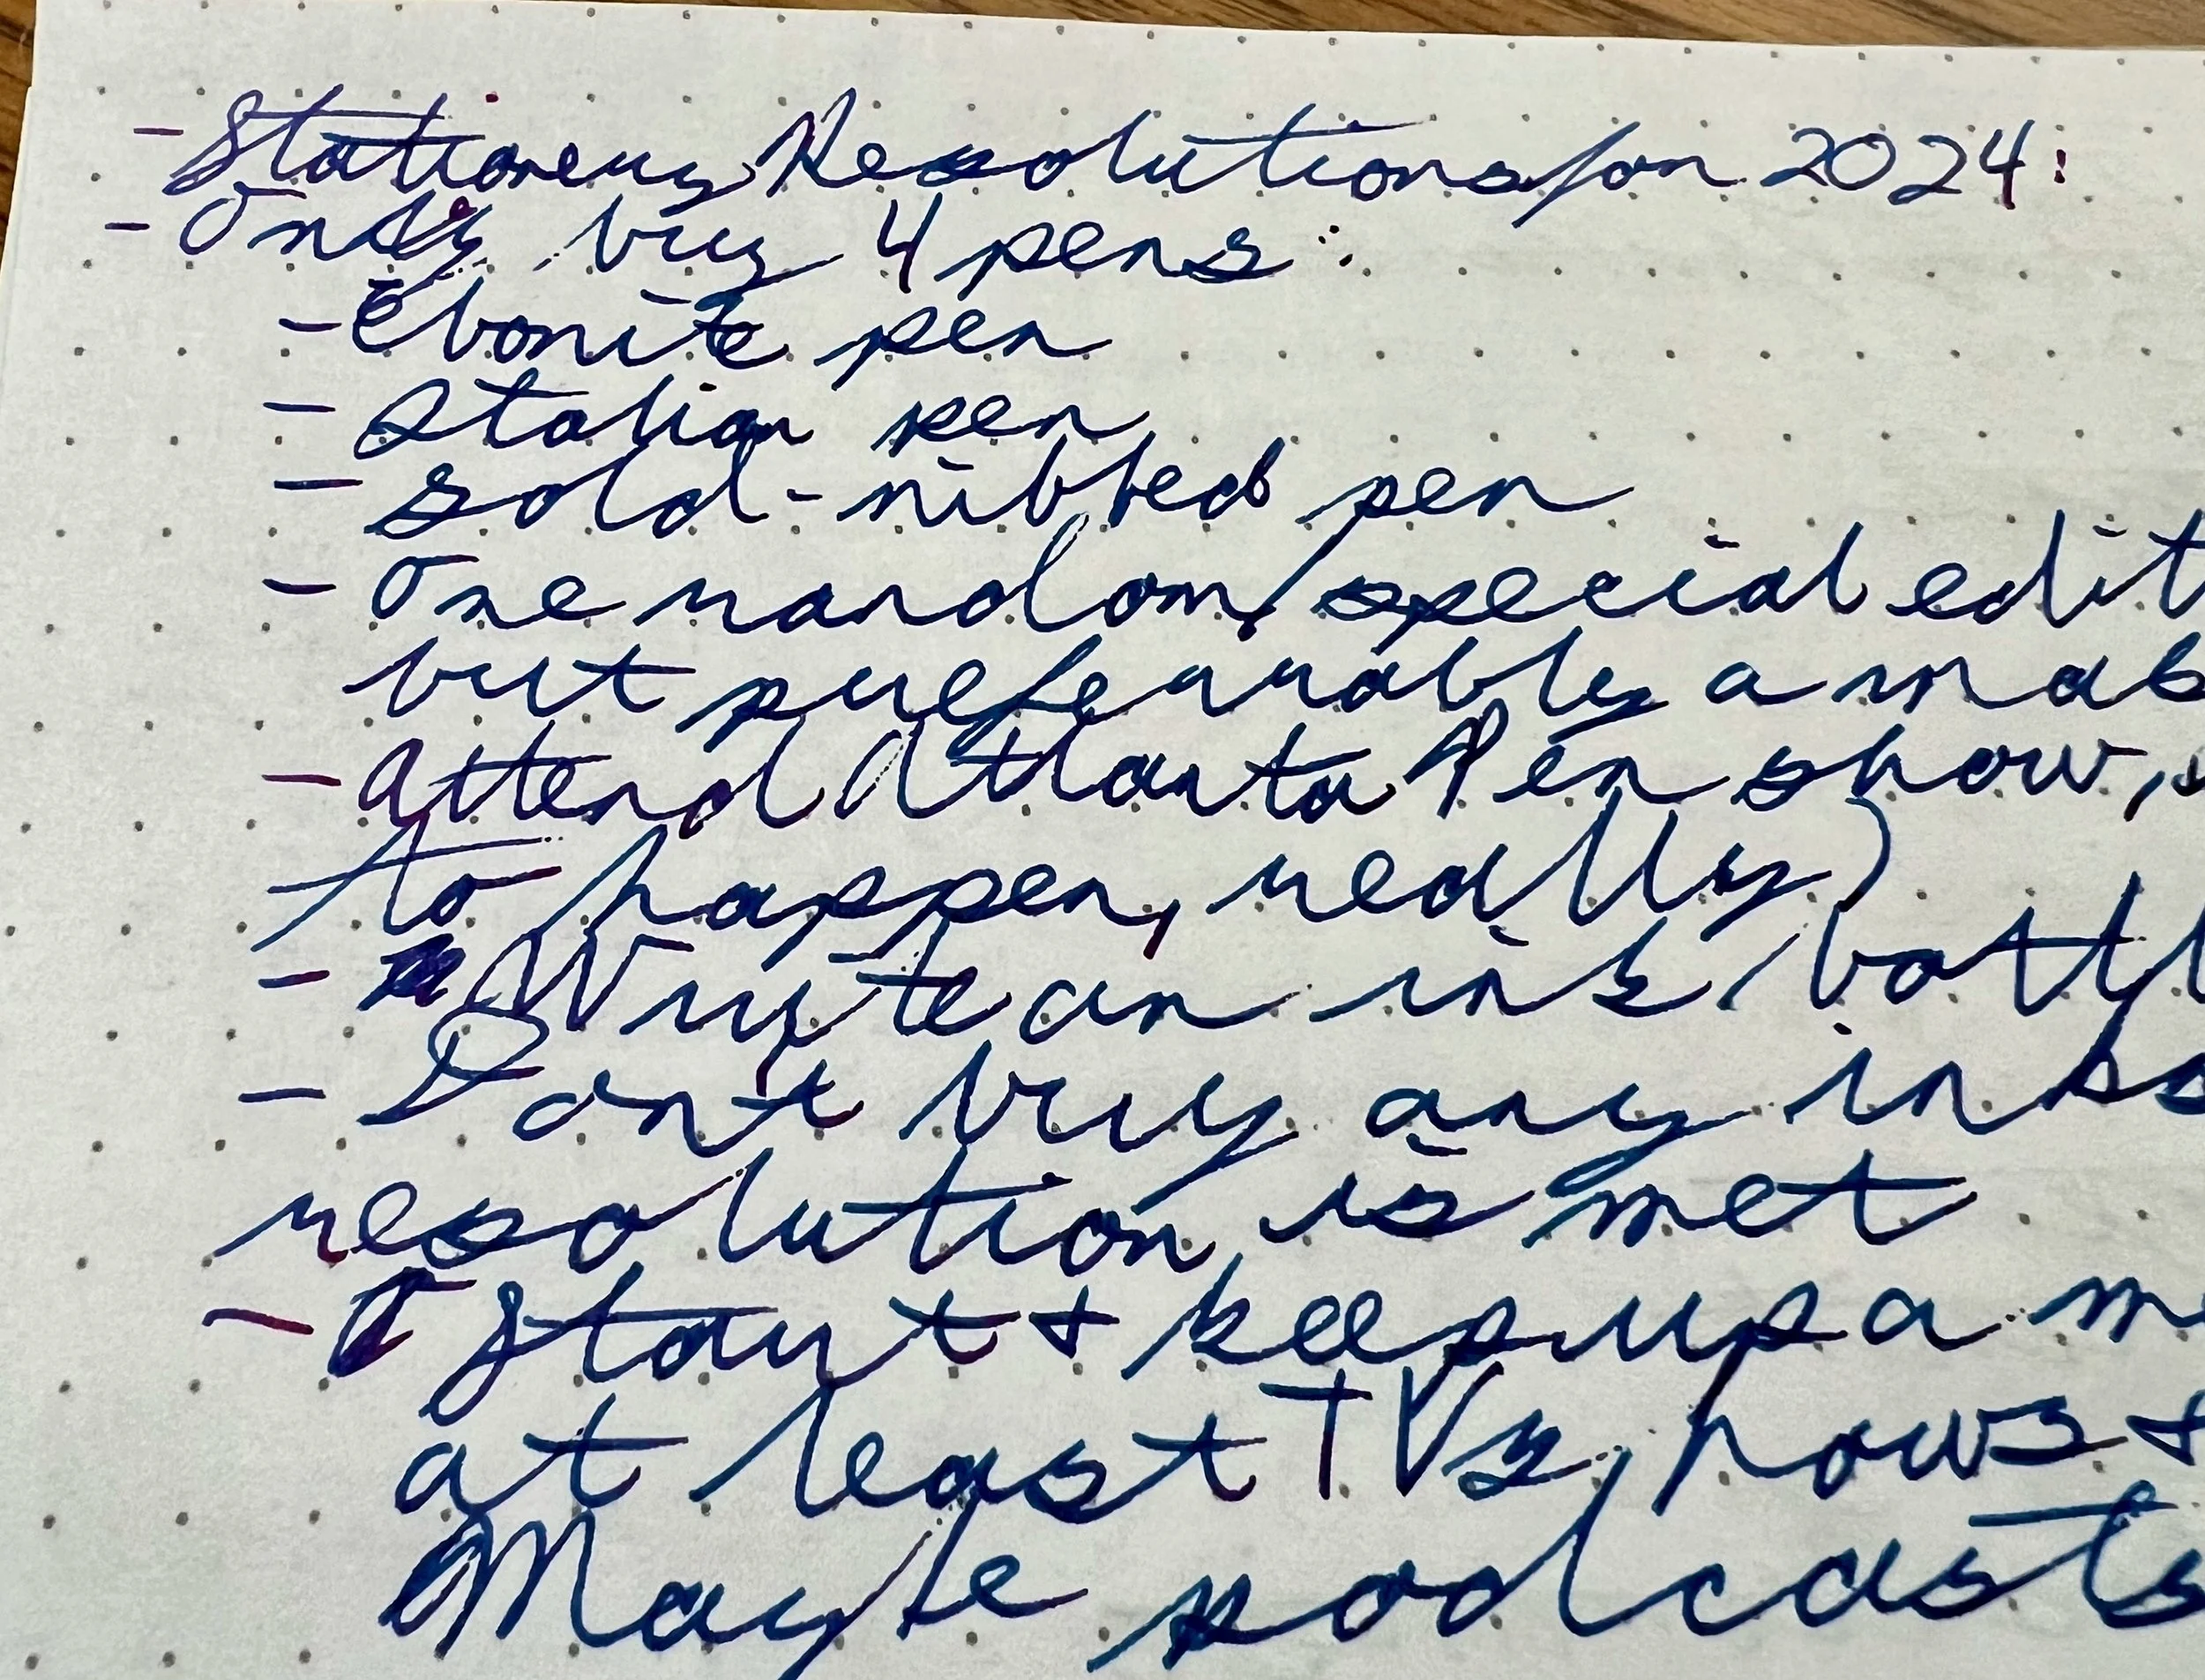 - Stationery Resolutions for 2024:
- Only buy 4 pens:
- Ebonite pen
- Italian pen
- gold-nibbed pen
- One random/special edit
but preferrably a mak
- Attend Atlanta Pen show,
to happen, really)
- Write an ink bottl
- Don't buy any ink
resolution is met
- Start + keep up a m
at least TV shows +
Maybe podcasts